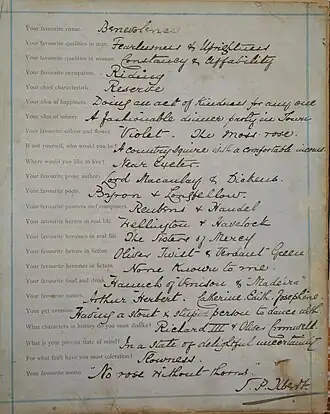 Your favourite virtue. Benevolence
Your favourite qualities in man. Fearlessness & Uprightness
Your favourite qualities in woman. Constancy & Affability
Your favourite occupation. Riding
Your chief characteristic. Reserve
Your idea of happiness. Doing an act of Kindness for any one
Your idea of misery. A fashionable dinner party in Town
Your favourite colour and flower. Violet - The Moss-rose.
If not yourself, who would you be? A country Squire with a comfortable income
Where would you like to live? Near Exeter.
Your favourite prose authors. Lord Macaulay & Dickens.
Your favourite poets. Byron & Longfellow.
Your favourite painters and composers. Reubens & Handel
Your favourite heroes in real life. Wellington & Havelock
Your favourite heroines in real life. The Sisters of Mercy
Your favourite heroes in fiction. Oliver Twist & "Verdant" Green
Your favourite heroines in fiction. None Known to me.
Your favourite food and drink. Haunch of Venison & "Madeira"
Your favourite names. Arthur Herbert. Catherine Edith Josephine.
Your pet aversion. Having a stout & stupid person to dance with
What characters in history do you most dislike? Richard III & Oliver Cromwell
What is your present state of mind? In a state of delightful uncertainty
For what fault have you most toleration? Slowness.
Your favourite motto. "No rose without thorns.